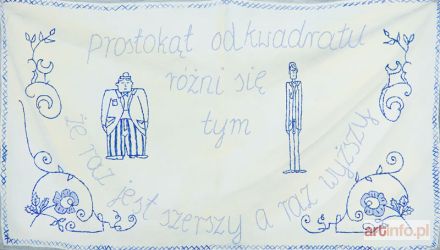 prostokąt od kwadratu
różni się
tym
że raz jest szerszy a raz wyższy
artinfo.pl